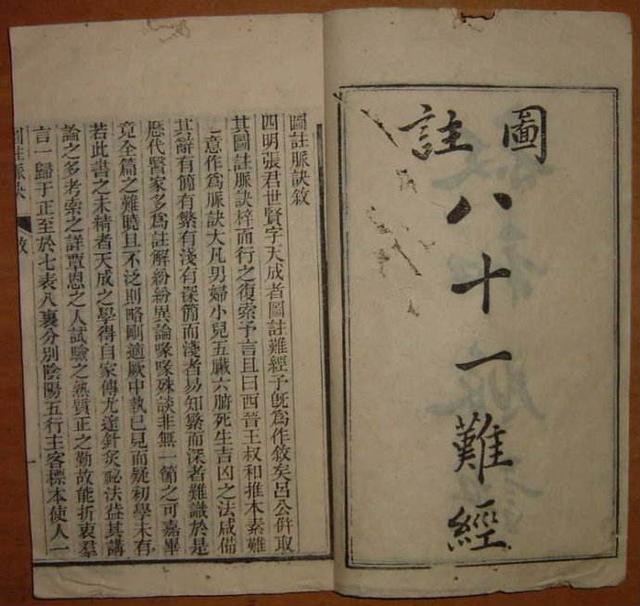 圖註
八十一難經
圖註脈訣敘
四明張君世賢字天成者圖註難經予旣爲作敘矣呂公併取
其圖註脈訣梓而行之復索予言且曰西晉王叔和推本素難
之意作爲脈訣大凡男婦小兒五臟六腑死生吉凶之法咸備
其辭有簡有繁有淺有深簡而淺者易知繁而深者難識於是
歷代醫家多爲註解紛紛異論喙喙殊談非無一節之可嘉畢
竟全篇之難曉且不泛則略剛適厥中執已見而疑初學未有
若此書之未精者天成之學得自家傳尤達針灸祕法益其講
論之多考索之詳覃思之人試驗之熟質正之勤故能折衷羣
言一歸于正至於七表八裏分別陰陽五行主客標本使人一
圖註脈訣 敘 一